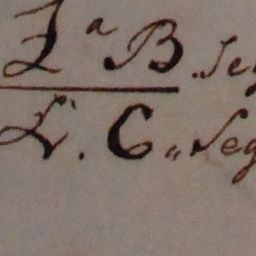 L.ª B. Seg
L. C. „ Seg